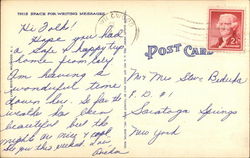 THIS SPACE FOR WRITING MESSAGES
Hi Folks!
Hope you had
a safe & happy trip
home from
Am having a
wonderful time
down here. So far the
weather has been
beautiful but the
nights are very cool
See you this weekend. Love
POST CARD
2¢
Mr Mrs Steve
R.D. #1
Saratoga Springs
New York